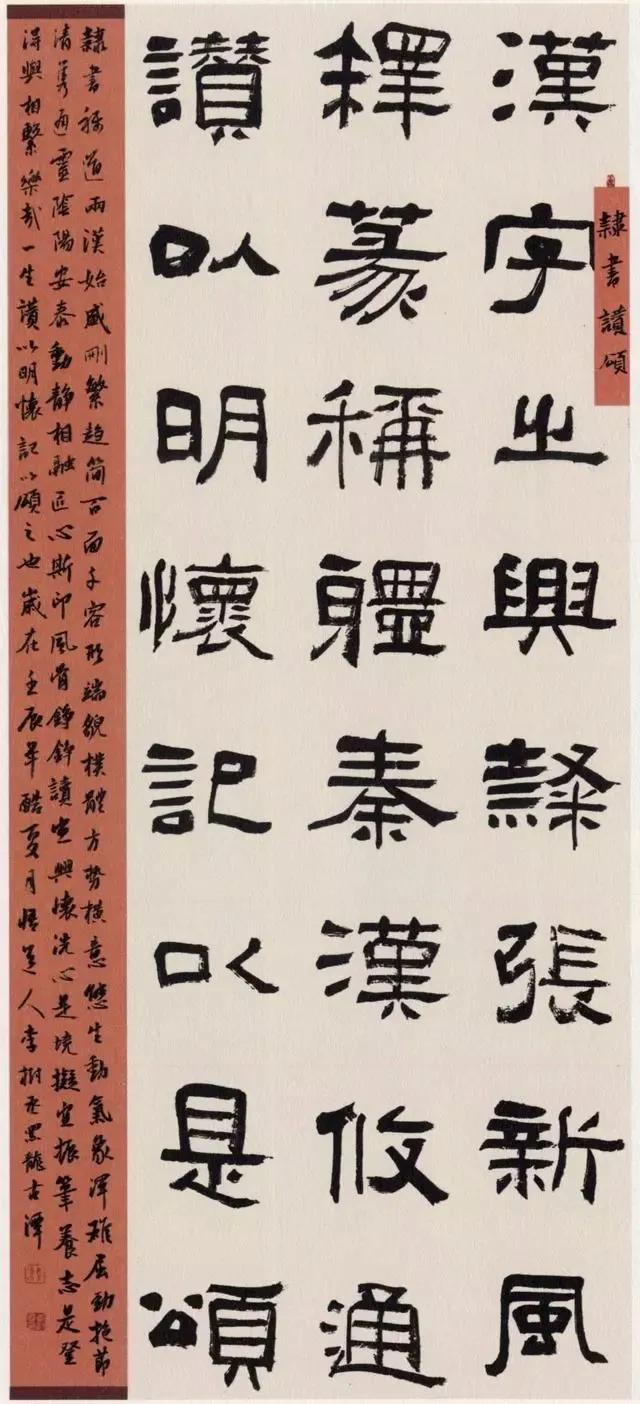 隸書讚頌
漢字之興隸張新風
釋篆稱疆秦漢攸通
讚以明懷記以是頌
隸書稱道兩漢始盛刪繁趋简百面千容形端貌樸體方勢橫意悠生動氣象渾雄屈勁抱節
清雋通靈陰陽安泰動靜相融匠心斯印風骨錚錚讀岂興懷洗心是境擬宜振筆養志是登
得興相繫樂哉一生讚以明懷記以頌之也歲在壬辰年酷夏月悟道人李樹 黑龍古潭